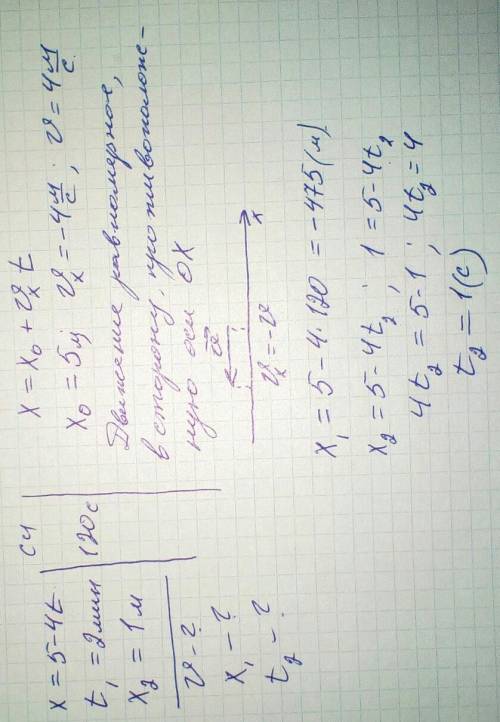 x = 5 - 4t
t₁ = 2 мин
x₂ = 1 м
v - ?
x₁ - ?
t₂ - ?
СИ
120 с
x = x₀ + vₓt
x₀ = 5 м; vₓ = -4 м/с; v = 4 м/с
Движение равномерное,
в сторону, противоположе-
ную оси OX
v⃗
x
vₓ = -v
x₁ = 5 - 4 · 120 = -475 (м)
x₂ = 5 - 4t₂; 1 = 5 - 4t₂
4t₂ = 5 - 1; 4t₂ = 4
t₂ = 1 (с)